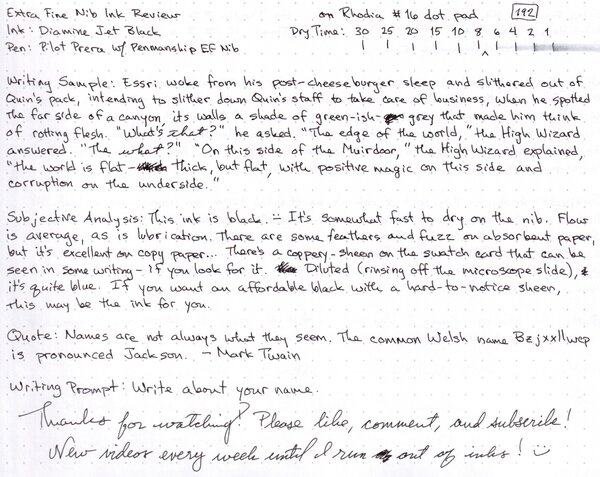 Extra Fine Nib Ink Review on Rhodia #16 dot pad 192
Ink: Diamine Jet Black Dry Time: 30 25 20 15 10 8 6 4 2 1
Pen: Pilot Prera w/ Penmanship EF Nib
Writing Sample: Essri woke from his post-cheeseburger sleep and slithered out of
Quin's pack, intending to slither down Quin's staff to take care of business, when he spotted
the far side of a canyon, its walls a shade of green-ish-grey that made him think
of rotting flesh. "What's that?" he asked. "The edge of the world," the High Wizard
answered. "The what?" "On this side of the Muirdoor," the High Wizard explained,
"the world is flat - thick, but flat, with positive magic on this side and
corruption on the underside."
Subjective Analysis: This ink is black. :) It's somewhat fast to dry on the nib. Flow
is average, as is lubrication. There are some feathers and fuzz on absorbent paper,
but it's excellent on copy paper... There's a coppery-sheen on the swatch card that can be
seen in some writing - if you look for it. Diluted (rinsing off the microscope slide),
it's quite blue. If you want an affordable black with a hard-to-notice sheen,
this may be the ink for you.
Quote: Names are not always what they seem. The common Welsh name Bzjxxllwcp
is pronounced Jackson. - Mark Twain
Writing Prompt: Write about your name.
Thanks for watching! Please like, comment, and subscribe!
New videos every week until I run out of inks! :)